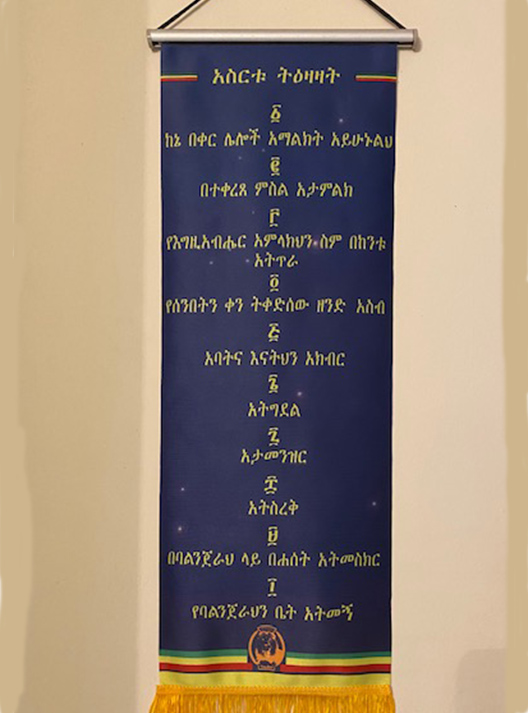 አስርቱ ትዕዛዛት
፩
ከኔ በቀር ሌሎች አማልክት አይሁኑልህ
፪
በተቀረጸ ምስል አታምልክ
፫
የእግዚአብሔር አምላክህን ስም በከንቱ
አትጥራ
፬
የሰንበትን ቀን ትቀድሰው ዘንድ አስብ
፭
አባትና እናትህን አክብር
፮
አትግደል
፯
አታመንዝር
፰
አትስረቅ
፱
በባልንጀራህ ላይ በሐሰት አትመስክር
፲
የባልንጀራህን ቤት አትመኝ